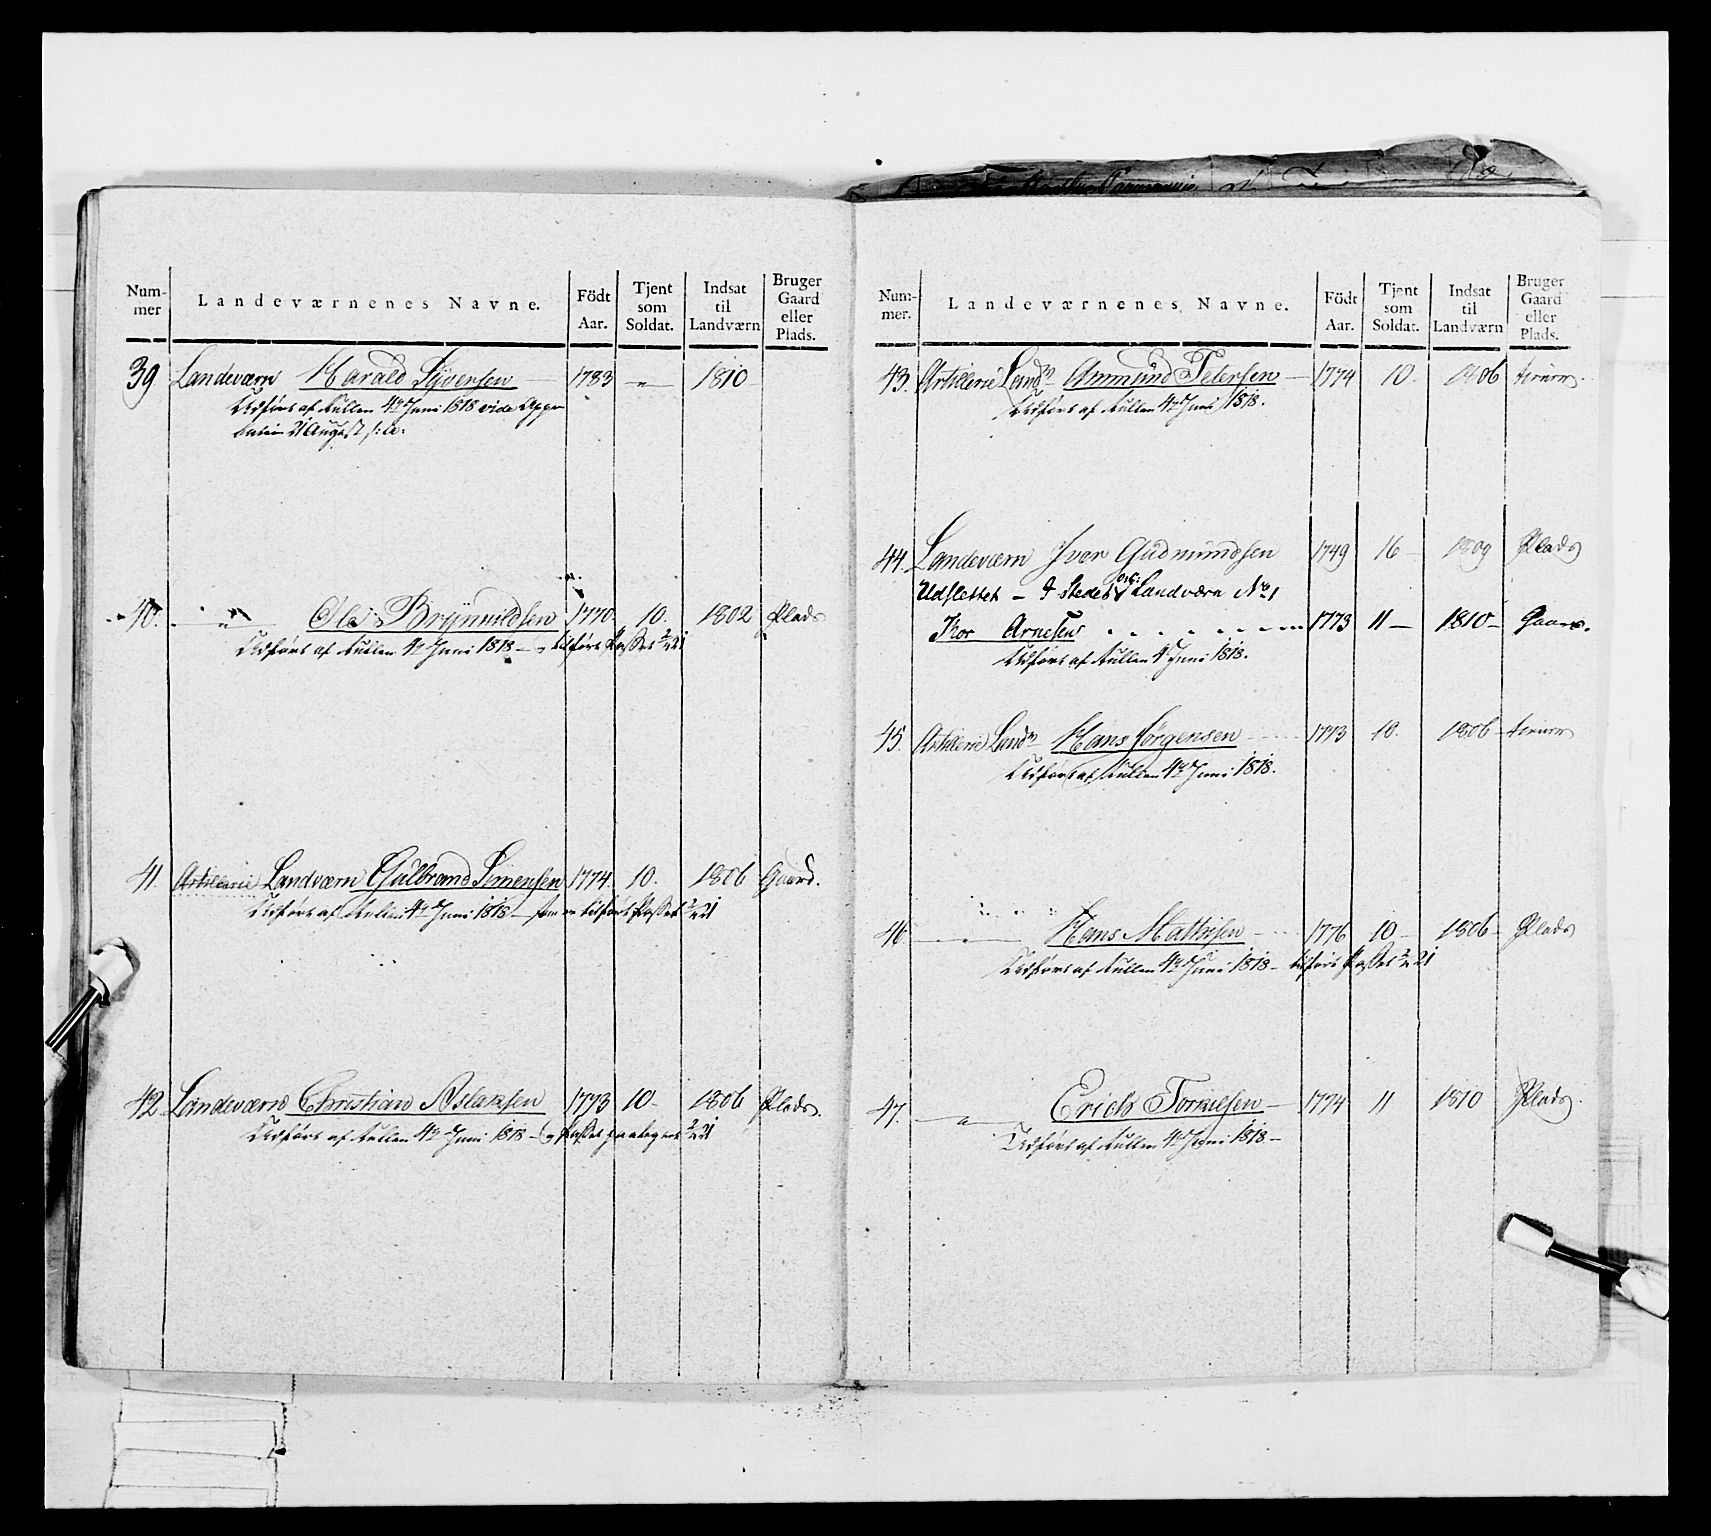 Num-
mer
Landeværnenes Navne.
Födt
Aar.
Tjent
som
Soldat.
Indsat
til
Landværn
Bruger
Gaard
eller
Plads.
39 Landeværn Harald Syversen 1783 " 1810
Udført af Rullen 4de Juni 1818 vide Appro
bation 21 August s: a:
40. " Ole Brynnildsen 1770 10. 1802 Plads
Udført af Rullen 4de Juni 1818 – tilført Passet
41. Artillerie Landværn Gulbrand Simensen 1774 10. 1806 Gaard.
Udført af Rullen 4de Juni 1818 – tilført Passet
42 Landeværn Christian Aslaksen 1773 10 – 1806 Plads.
Udført af Rullen 4de Juni 1818 – Passet paategnet
Num-
mer.
Landeværnenes Navne.
Födt
Aar.
Tjent
som
Soldat.
Indsat
til
Landværn
Bruger
Gaard
eller
Plads.
43. Artillerie Landn Ammund Petersen – 1774 10. 1806
Udført af Rullen 4de Juni 1818.
44. Landeværn Iver Gudmundsen 1749 16 – 1809 Plads
Udslettet – I Stedet Landværn No 1
Tor Arnesen 1773 11 – 1810 – Gaard.
Udført af Rullen 4 Juni 1818.
45. Artillerie Landn Hans Jørgensen 1773 10. 1806
Udført af Rullen 4de Juni 1818.
46 " Hans Mathisen 1776 10 – 1806 – Plads
Udført af Rullen 4de Juni 1818 – tilført Passet
47. " Erich Torkilsen – 1774 11 1810 Plads.
Udført af Rullen 4de Juni 1818 –